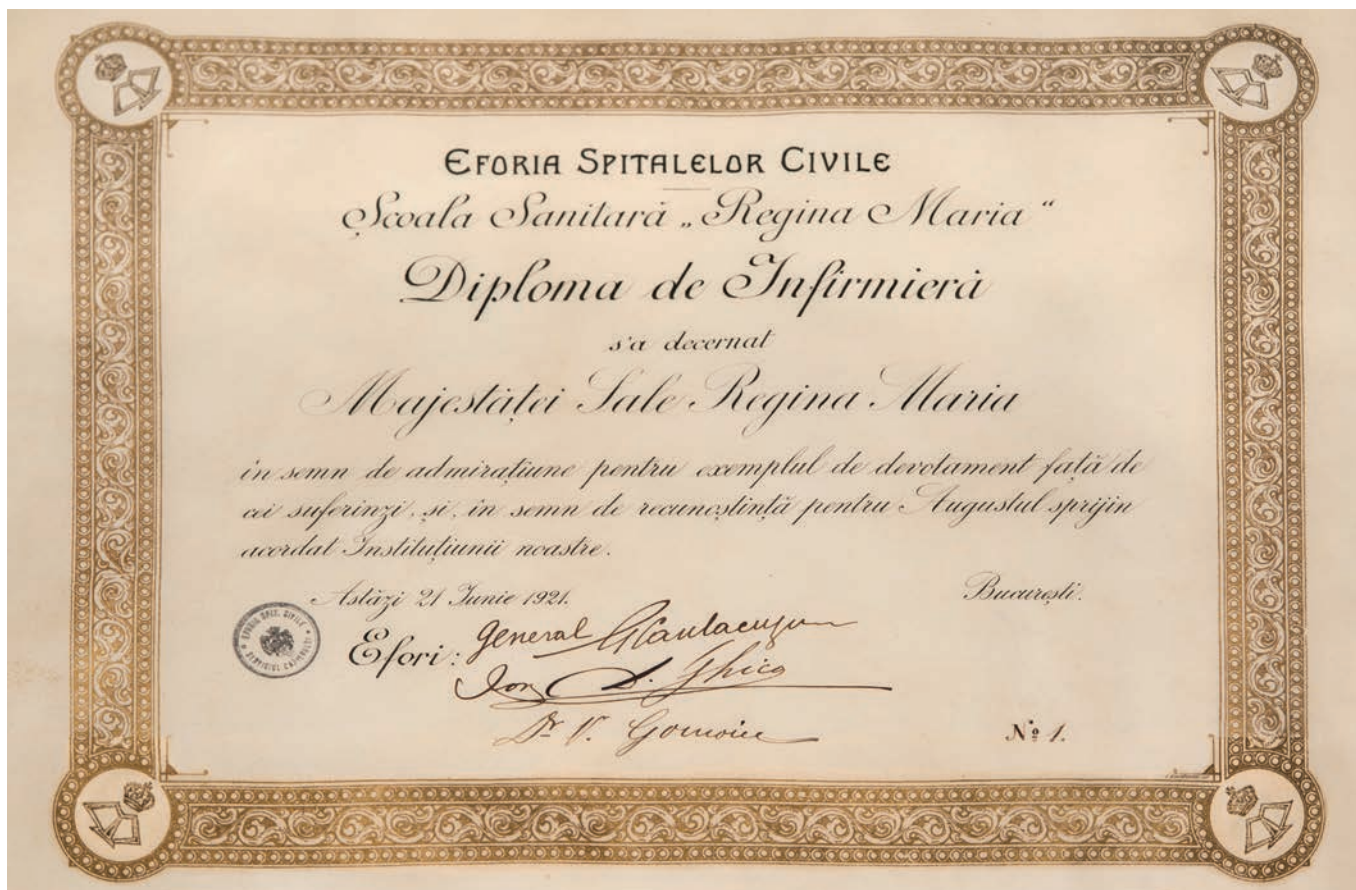 EFORIA SPITALELOR CIVILE
Școala Sanitară „Regina Maria“
Diploma de Infirmieră
s'a decernat
Majestăței Sale Regina Maria
în semn de admirațiune pentru exemplul de devotament față de
cei suferinzi, și, în semn de recunoștință pentru Augustul sprijin
acordat Instituțiunii noastre.
Astăzi 21 Iunie 1921. București.
Efori: General G Cantacuzin
Ion D. Ghica
Dr V. Gomoiu
No 1.